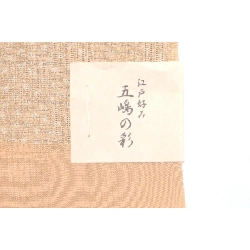 江戸好み
五嶋の彩